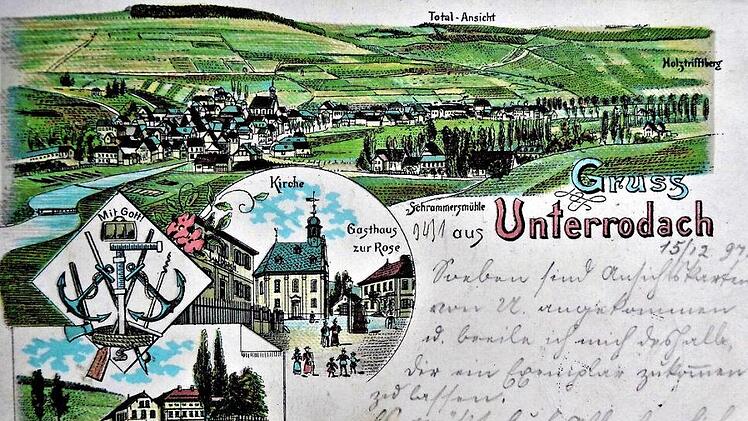 Total-Ansicht
Holztriftberg
Kirche
Schrammersmühle
Gruss
Mit Gott!
Gasthaus
zur Rose
aus Unterrodach
15/12 97.
Soeben sind Ansichtskarten
von U. angekommen
u. beeile ich mich deshalb,
Dir ein Exemplar zukommen
zu lassen.